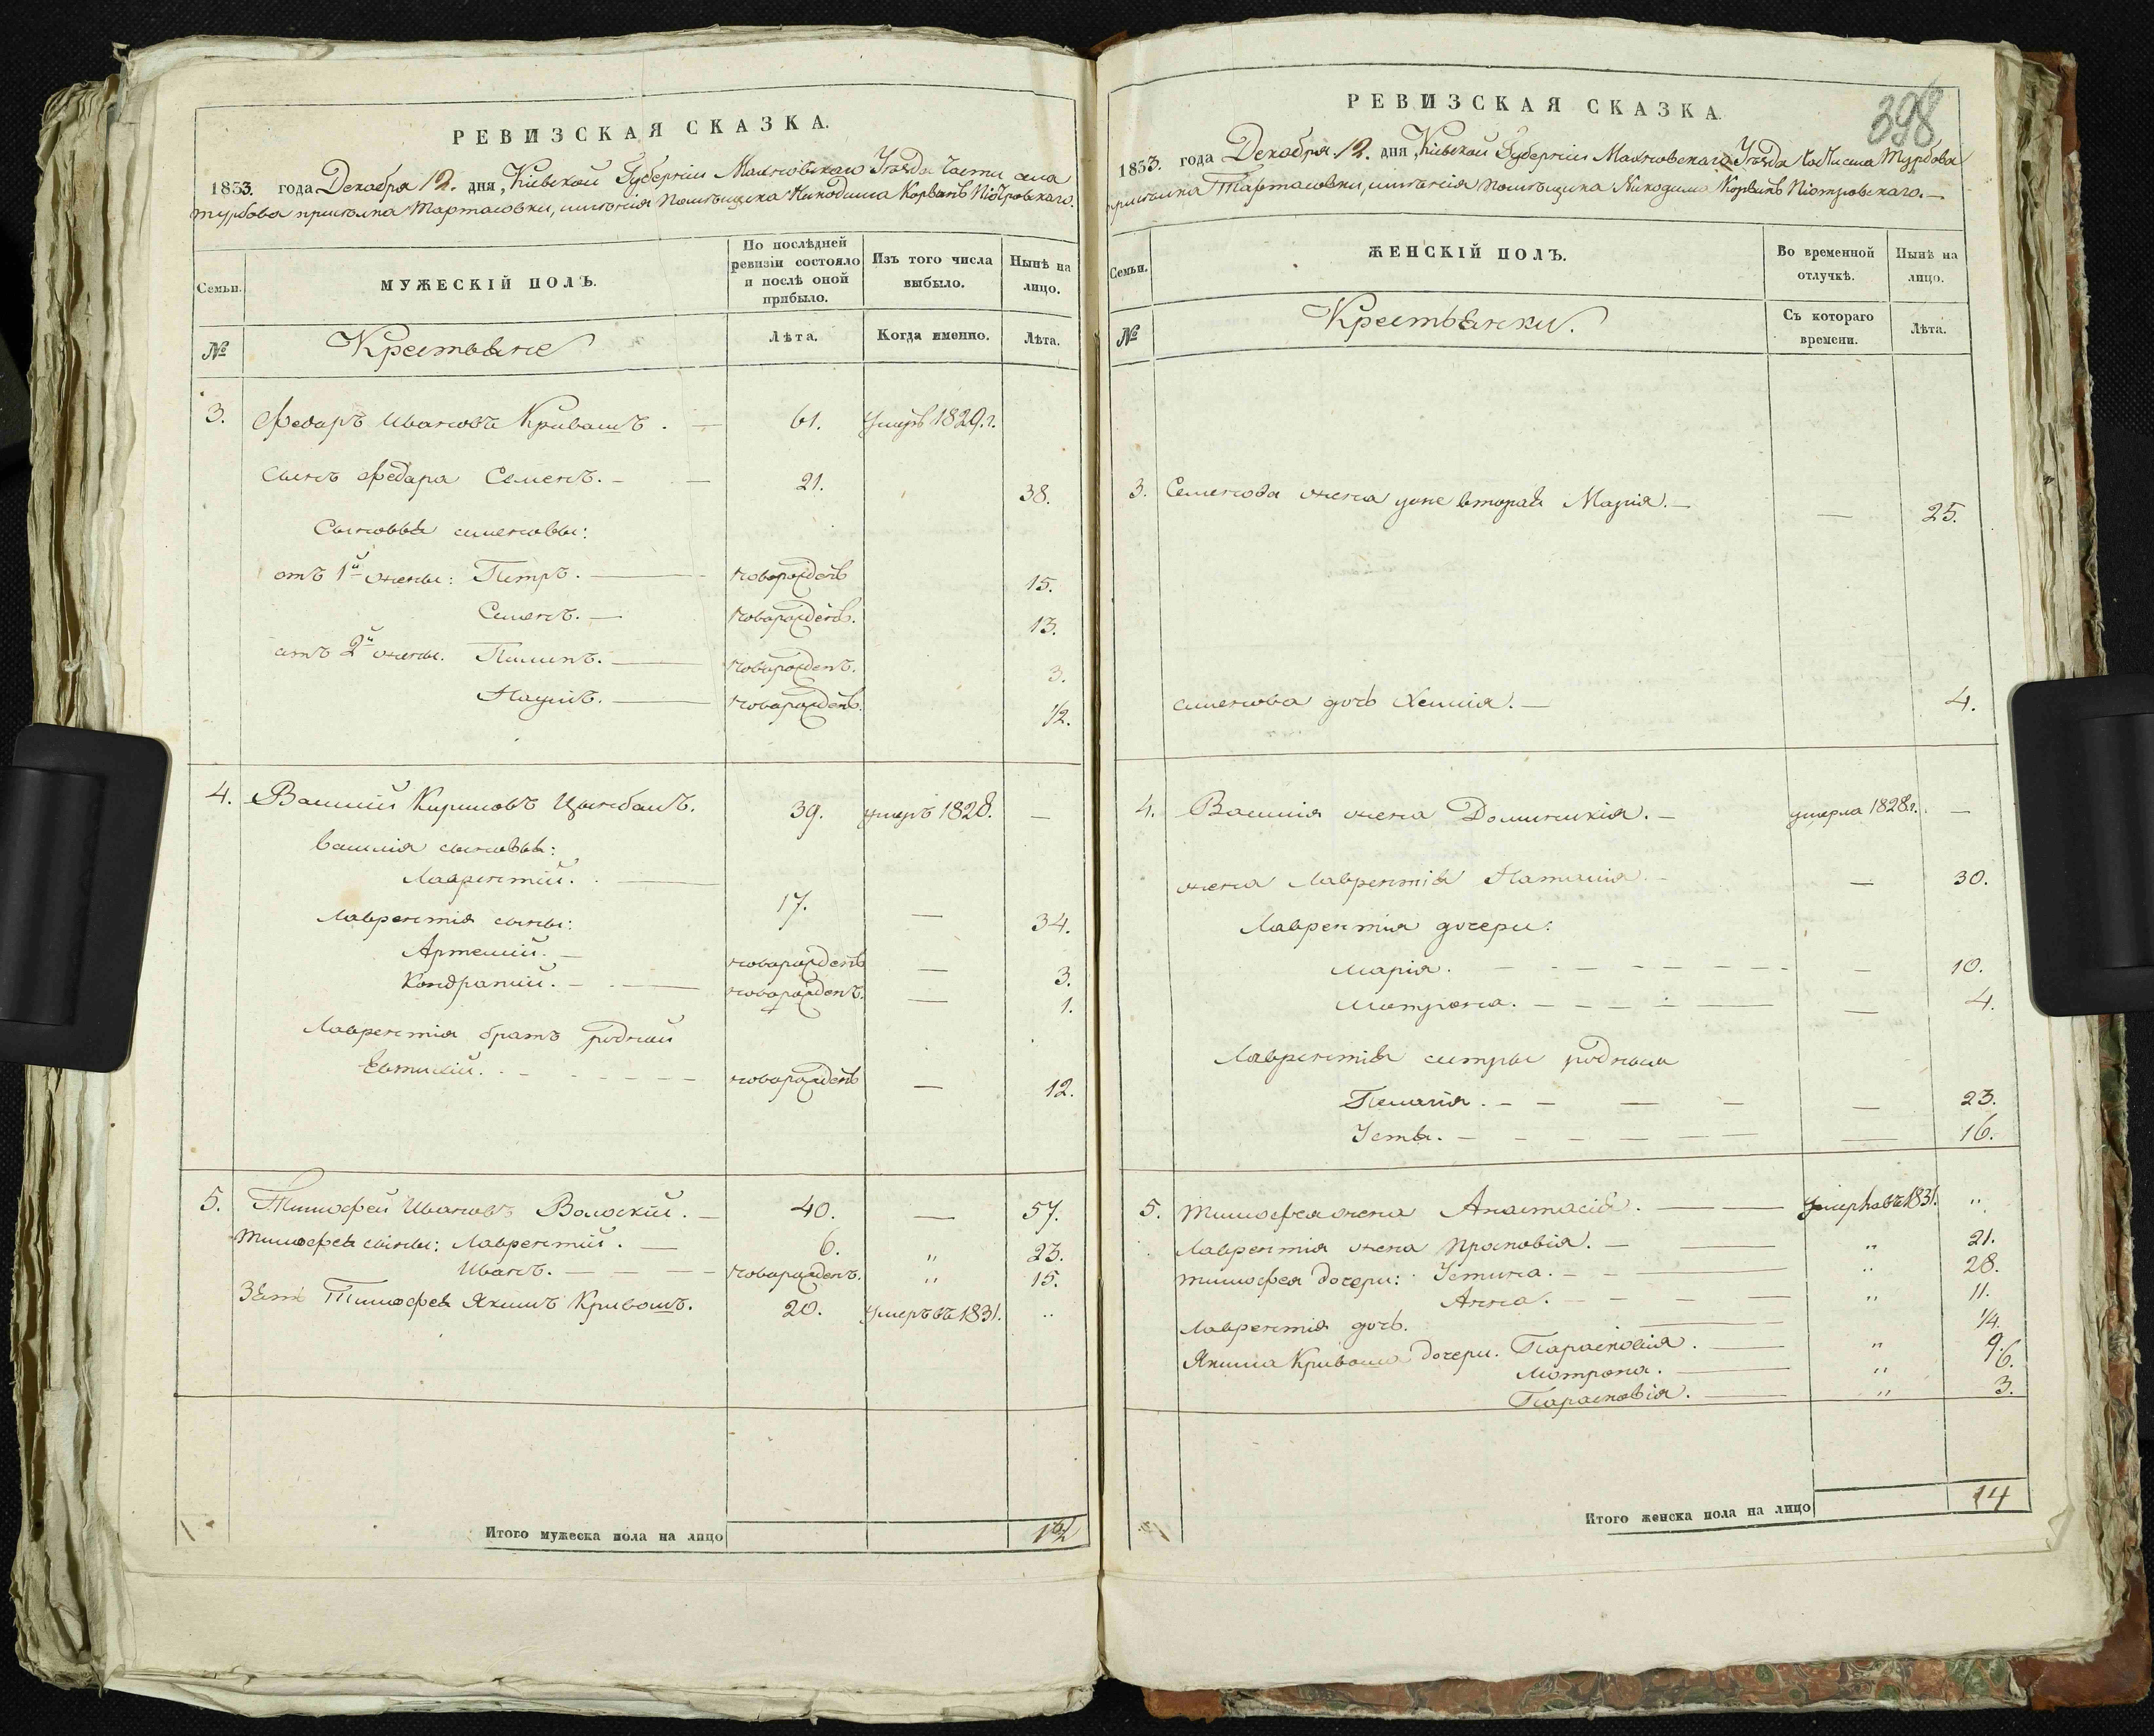 РЕВИЗСКАЯ СКАЗКА.
1833. года Декабря 12. дня, Кіевской Губерніи Махновского Уезда Части села
Турбова приселка Тартаковки, именія Помещика Никодима Корвинъ Піотровскаго.
Семьи.
МУЖЕСКІЙ ПОЛЪ.
По послѣдней ревизіи состояло и послѣ оной прибыло.
Изъ того числа выбыло.
Нынѣ на лицо.
№
Крестьяне
Лѣта.
Когда именно.
Лѣта.
3. Федоръ Ивановъ Кривошъ. — 61. Умеръ 1829. г.
Сынъ Федора Семенъ. — — 21. 38.
Сыновья Семеновы:
отъ 1й жены: Петръ. — новорожденъ 15.
Семенъ. — новорожденъ. 13.
отъ 2й жены. Пилипъ. — новорожденъ. 3.
Наумъ. — новорожденъ. 1/2.
4. Василий Кириловъ Цымбалъ. 39. умеръ 1828. —
Василия сыновья:
Лаврентий. — 17. — 34.
Лаврентия сыны:
Артемий. — новорожденъ — 3.
Кондратий. — новорожденъ. — 1.
Лаврентия братъ родный
Евтихій. — новорожденъ — 12.
5. Тимофей Ивановъ Волоский. — 40. — 57.
Тимофея сыны: Лаврентий. — 6. " 23.
Иванъ. — новорожденъ. " 15.
Зять Тимофея Якимъ Кривошъ. 20. умеръ въ 1831. "
Итого мужеска пола на лицо
12
РЕВИЗСКАЯ СКАЗКА.
398
1833. года Декабря 12. дня, Кіевской Губерніи Махновскаго Уезда Части села Турбова
приселка Тартаковки, именія помещика Никодима Корвинъ Піотровскаго. —
Семьи.
ЖЕНСКІЙ ПОЛЪ.
Во временной отлучкѣ.
Нынѣ на лицо.
№
Крестьянки.
Съ котораго времени.
Лѣта.
3. Семенова жена уже вторая Марія. — — 25.
Семенова дочь Ксенія. — 4.
4. Василия жена Доминикія. — умерла 1828 г. —
жена Лаврентія Наталия. — — 30.
Лаврентия дочери:
Марія. — — 10.
Мотрона. — — 4.
Лаврентія сестры родные
Пелагія. — — 23.
Устя. — — 16.
5. Тимофея жена Анастасія. — умерла въ 1831. "
Лаврентія жена Прасковія. — " 21.
Тимофея дочери: Устина. — " 28.
Анна. — " 11.
Лаврентія дочь. — 1/4.
Якима Кривоша дочери. Парасковія. — " 9.
Мотрона. — " 6.
Парасковія. — " 3.
Итого женска пола на лицо
14